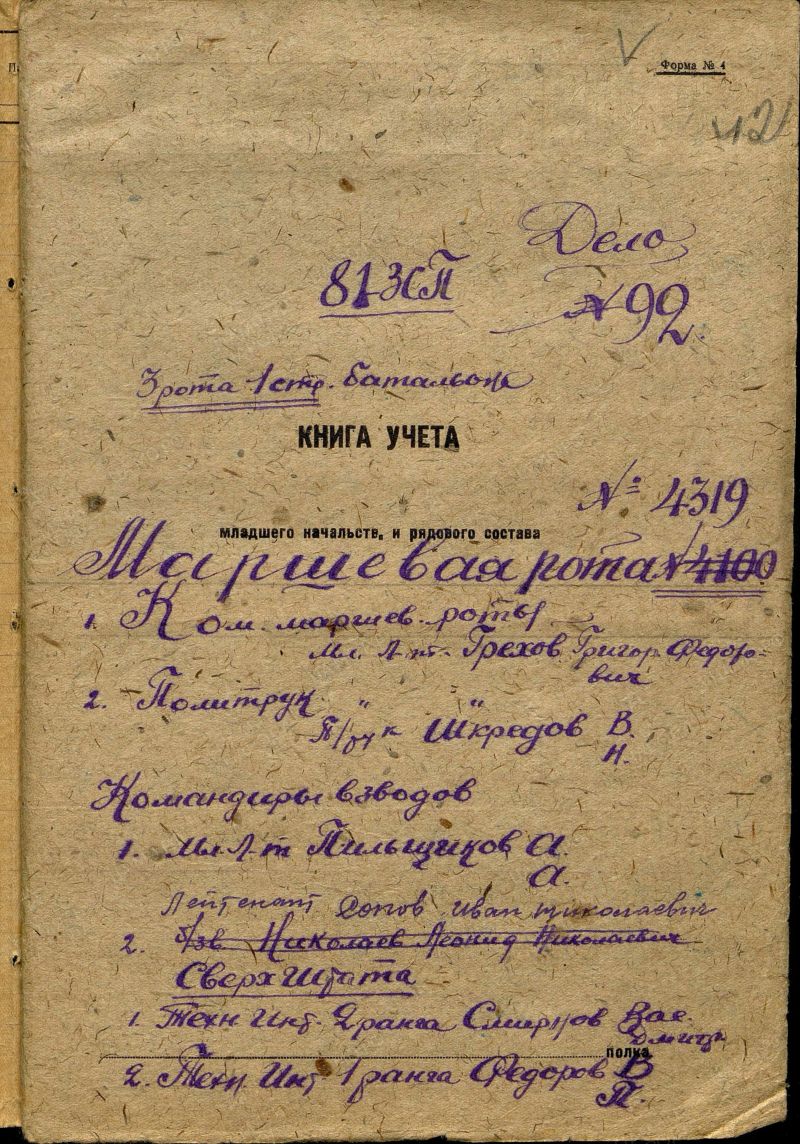 Форма № 4
121
Дело
81 ЗСП
№ 92.
3 рота 1 стр. батальона
КНИГА УЧЕТА
№ 4319
младшего начальств. и рядового состава
Маршевая рота № 4100
1. Ком. маршев. роты
Мл. Л-т. Грехов Григор. Федоро-
вич
2. Политрук " "
П/рук Шкредов В.
Н.
Командиры взводов
1. Мл Л-т Пильщиков А.
А.
Лейтенант Иван Николаевич
2. б/зв Николаев Леонид Николаевич
Сверх штата
1. Техн Инт. 2 ранга Смирнов Вас.
Дмитр
полка
2. Техн Инт 1 ранга Федоров В
П.